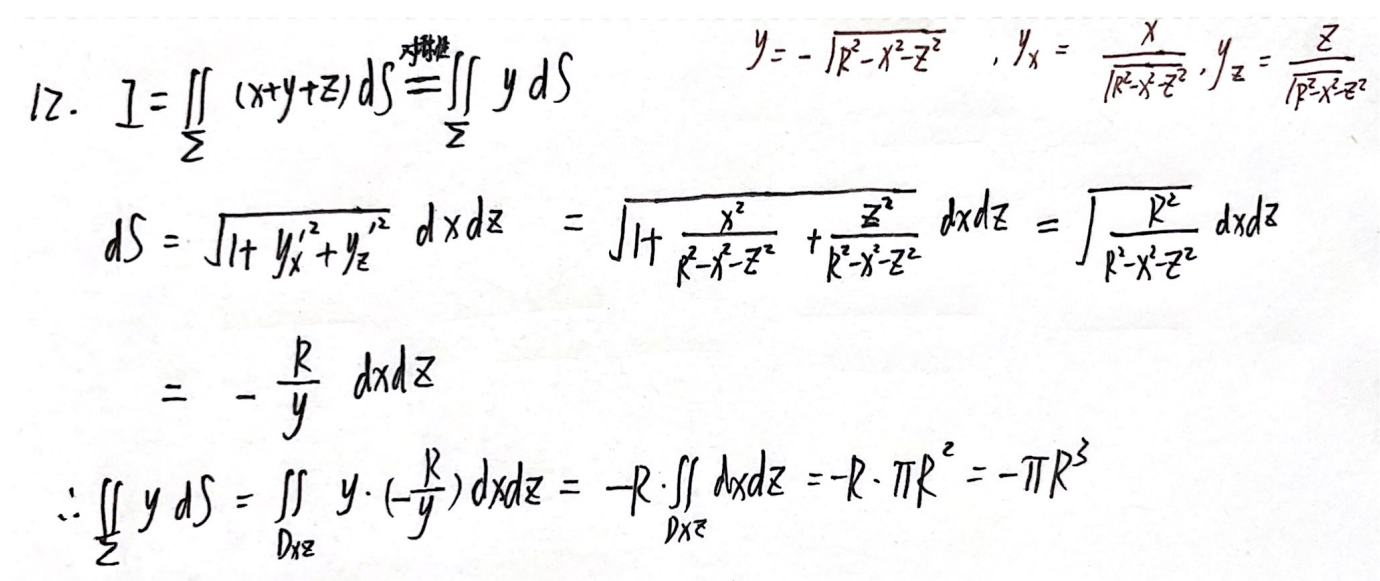 12. I = ∬_Σ (x+y+z) dS =(对称性) ∬_Σ y dS    y = -√(R²-x²-z²) , y_x = x/√(R²-x²-z²) , y_z = z/√(R²-x²-z²)
dS = √(1+y_x'²+y_z'²) dxdz = √(1+x²/(R²-x²-z²)+z²/(R²-x²-z²)) dxdz = √(R²/(R²-x²-z²)) dxdz
= -R/y dxdz
∴ ∬_Σ y dS = ∬_Dxz y·(-R/y) dxdz = -R·∬_Dxz dxdz = -R·πR² = -πR³